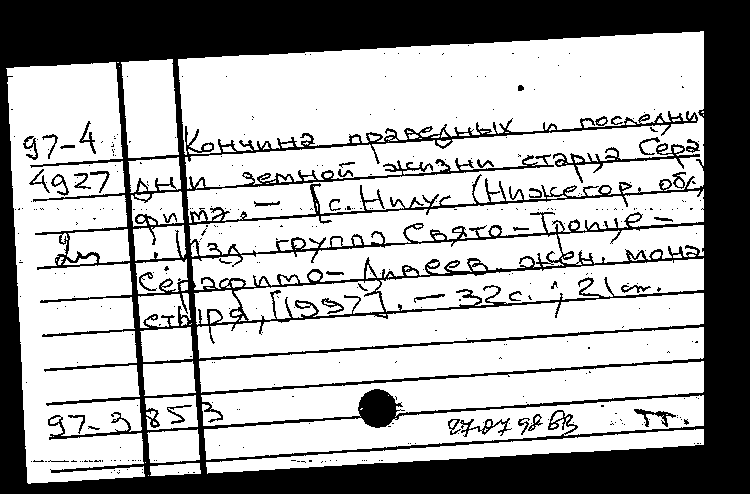 97-4 Кончина праведных и последние
4927 дни земной жизни старца Сера-
фима. — [с. Нилус (Нижегор. обл.)
2м : Изд. группа Свято-Троице-
Серафимо-Дивеев. жен. мона-
стыря, [1997]. — 32с. ; 21 см.
97-3853
27.07.98 тт.